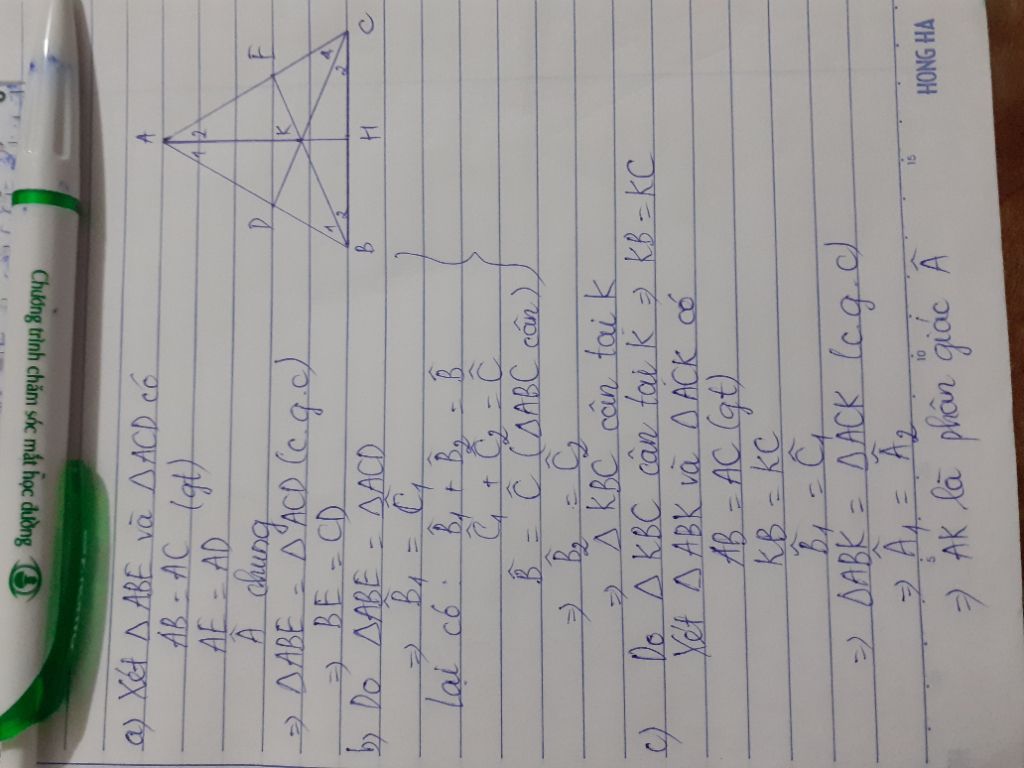 Chương trình chăm sóc mắt học đường
A
1 2
D
E
K
1
2
1
2
B
H
C
a) Xét Δ ABE và Δ ACD có
AB = AC (gt)
AE = AD
Â chung
⇒ ΔABE = ΔACD (c.g.c)
⇒ BE = CD
b) Do ΔABE = ΔACD
⇒ B̂1 = Ĉ1
Lại có: B̂1 + B̂2 = B̂
Ĉ1 + Ĉ2 = Ĉ
B̂ = Ĉ (ΔABC cân)
⇒ B̂2 = Ĉ2
⇒ Δ KBC cân tại K
c) Do Δ KBC cân tại K ⇒ KB = KC
Xét Δ ABK và Δ ACK có
AB = AC (gt)
KB = KC
B̂1 = Ĉ1
⇒ ΔABK = ΔACK (c.g.c)
⇒ Â1 = Â2
⇒ AK là phân giác Â
5 10 15
HONG HA